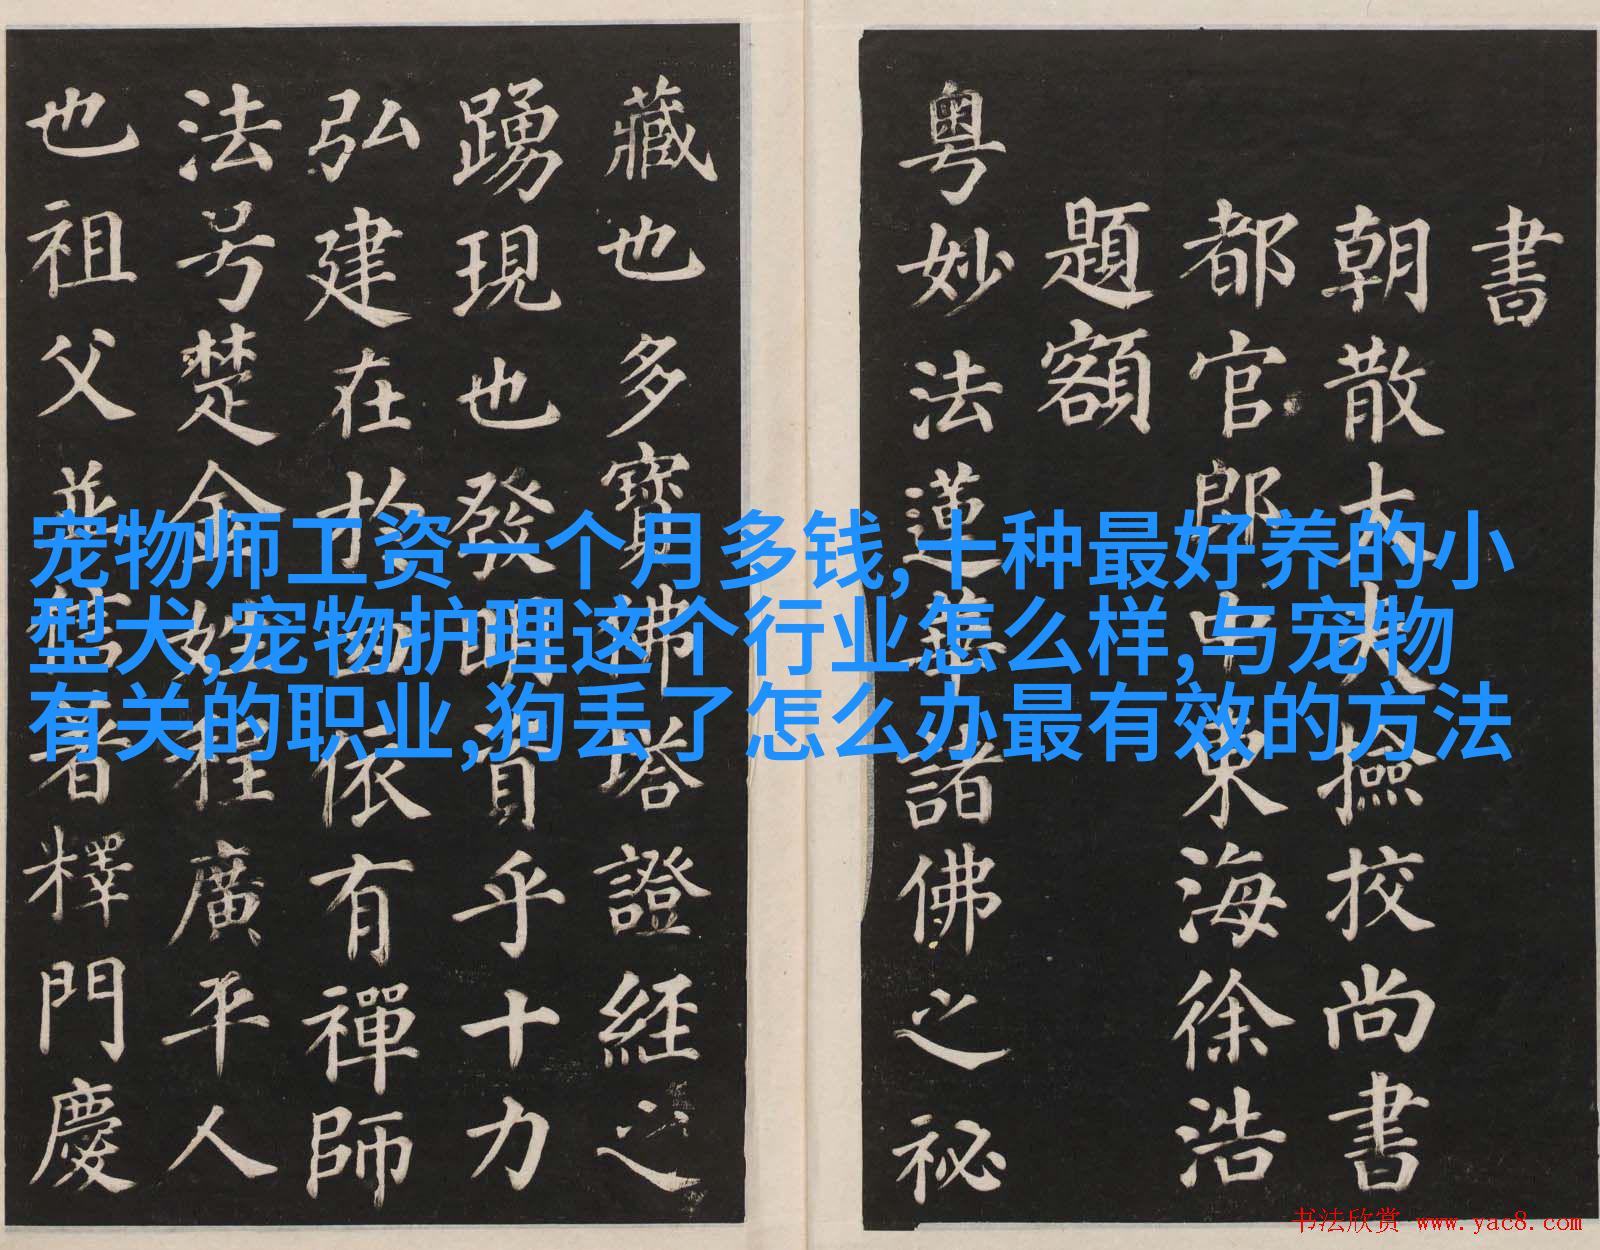 宠物师工资一个月多钱,十种最好养的小
型犬,宠物护理这个行业怎么样,与宠物
有关的职业,狗丢了怎么办最有效的方法
書
朝散大夫撿挍尚書
都官郎中東海徐浩
題額
粵妙法蓮華諸佛之祕
藏也多寶佛塔證經之
踴現也發明資乎十力
弘建在於四依有禪師
法号楚金姓程廣平人
也祖父並信著釋門慶
书法欣赏 www.yac8.com